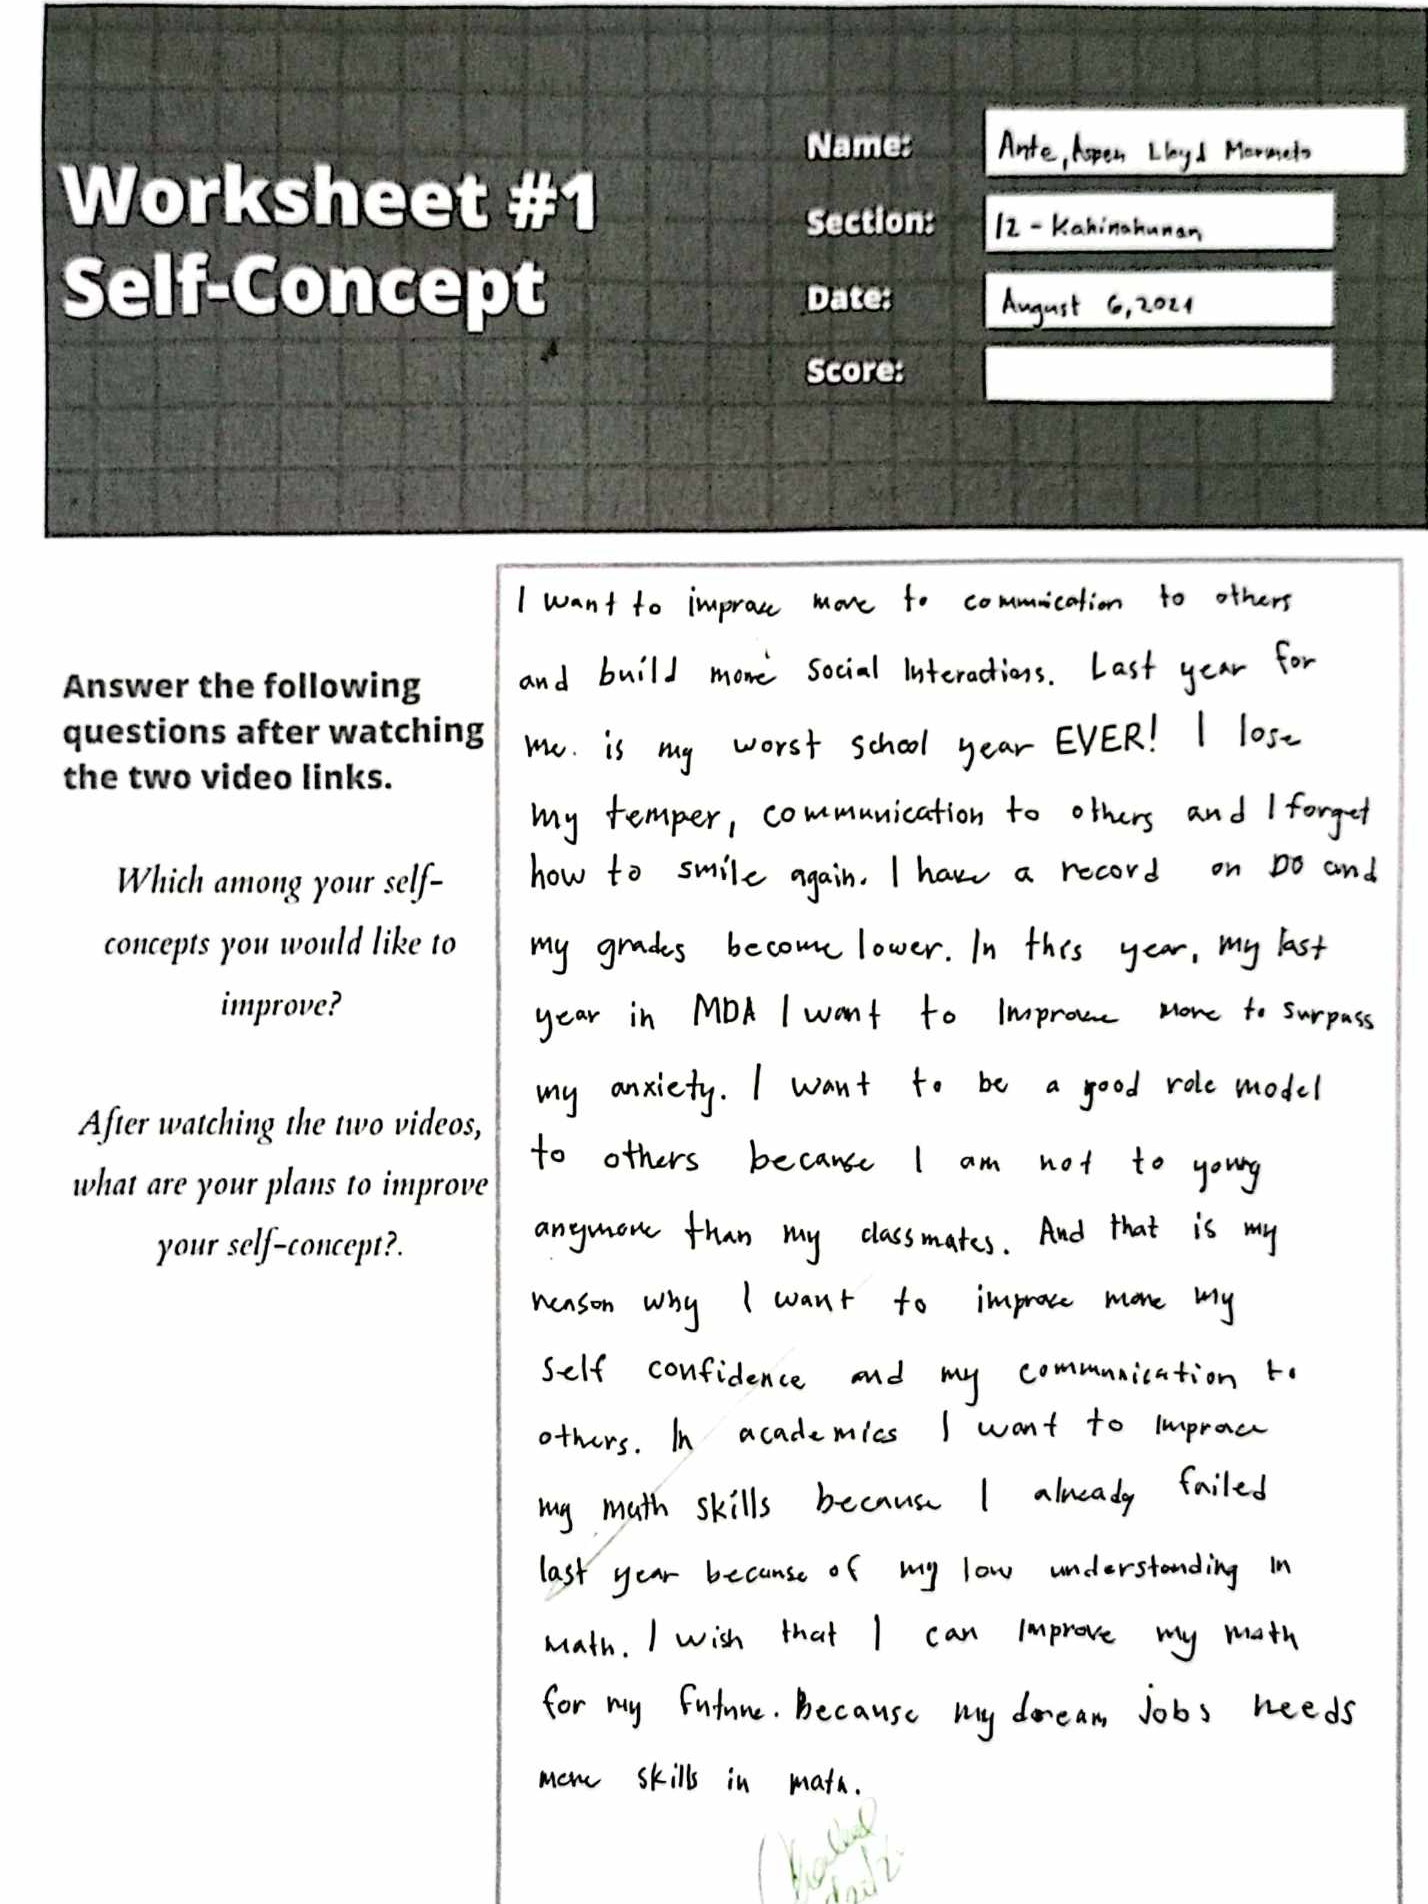 Worksheet #1
Self-Concept
Name: Ante, Aspen Lloyd
Section: 12 - Kahinahunan
Date: August 6, 2021
Score:
Answer the following
questions after watching
the two video links.
Which among your self-
concepts you would like to
improve?
After watching the two videos,
what are your plans to improve
your self-concept?.
I want to improve more to commnication to others
and build more Social Interactions. Last year for
me. is my worst school year EVER! I lose
my temper, communication to others and I forget
how to smile again. I have a record on DO and
my grades become lower. In this year, my last
year in MDA I want to Improve more to surpass
my anxiety. I want to be a good role model
to others because I am not to young
anymore than my classmates. And that is my
reason why I want to improve more my
self confidence and my communication to
others. In academics I want to Improve
my math skills because I already failed
last year because of my low understanding in
math. I wish that I can Improve my math
for my future. Because my dream jobs needs
more skills in math.